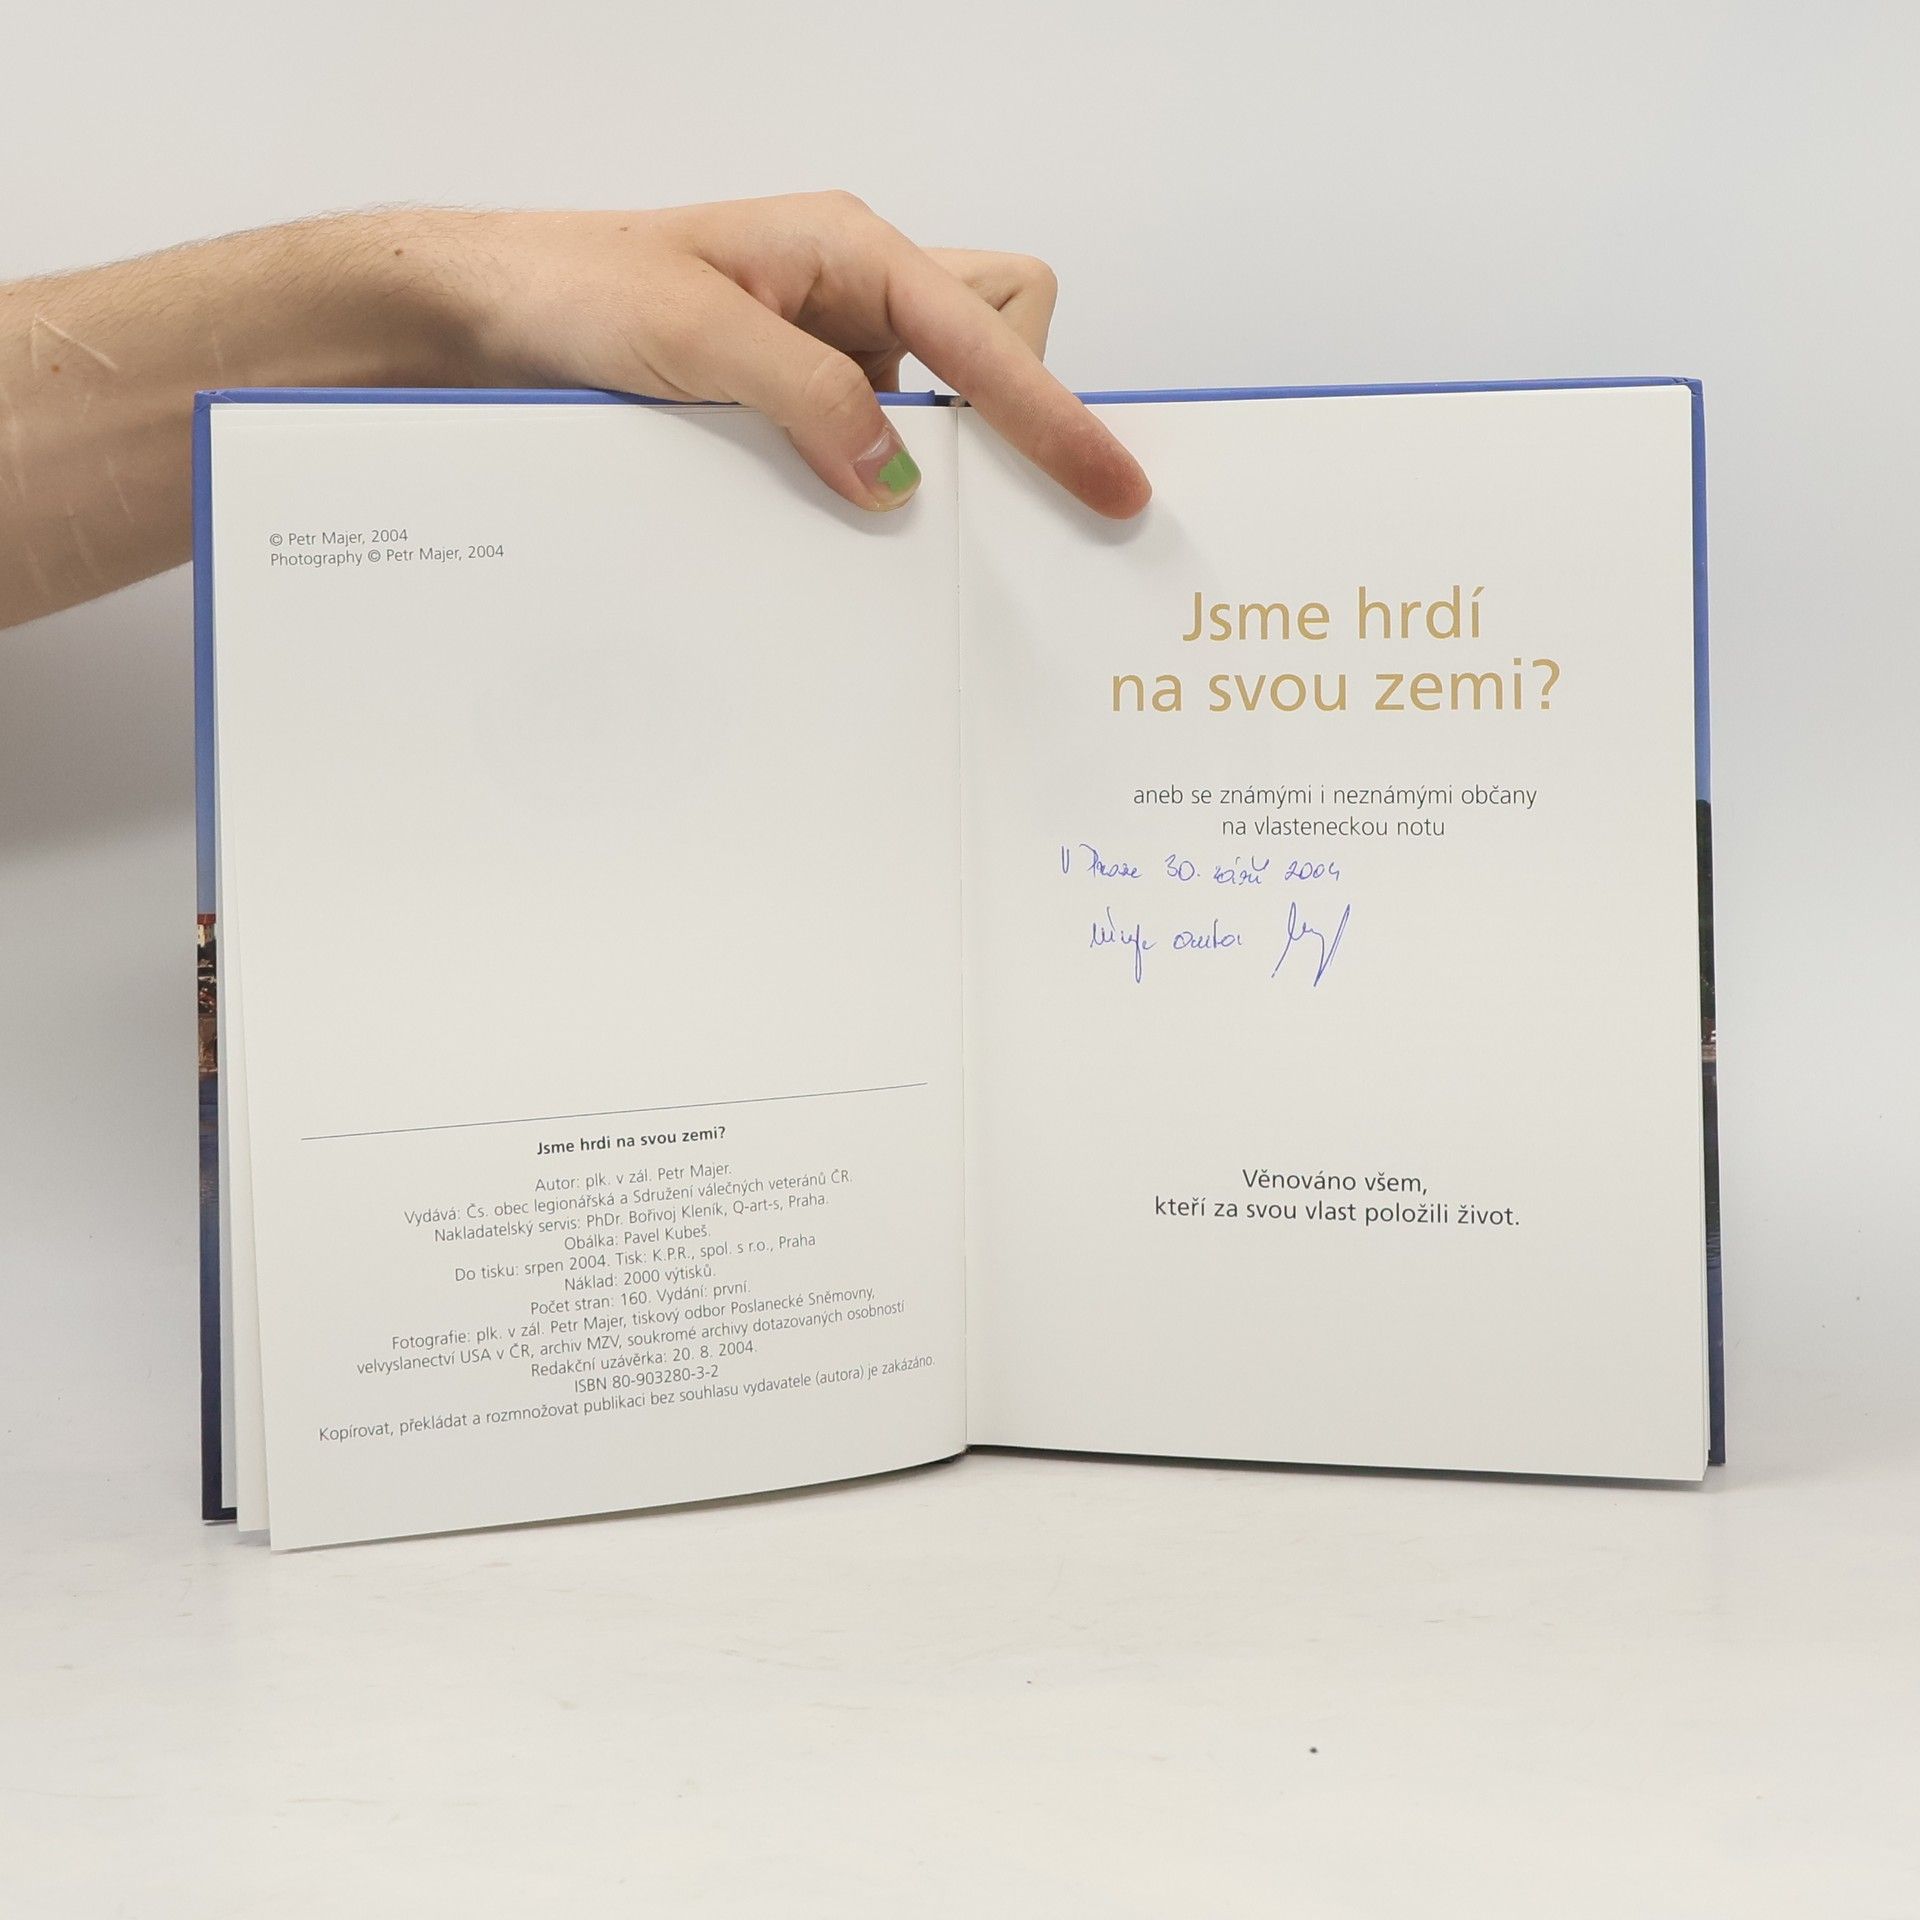 © Petr Majer, 2004
Photography © Petr Majer, 2004
Jsme hrdi na svou zemi?
Autor: plk. v zál. Petr Majer.
Vydává: Čs. obec legionářská a Sdružení válečných veteránů ČR.
Nakladatelský servis: PhDr. Bořivoj Kleník, Q-art-s, Praha.
Obálka: Pavel Kubeš.
Do tisku: srpen 2004. Tisk: K.P.R., spol. s r.o., Praha
Náklad: 2000 výtisků.
Počet stran: 160. Vydání: první.
Fotografie: plk. v zál. Petr Majer, tiskový odbor Poslanecké Sněmovny,
velvyslanectví USA v ČR, archiv MZV, soukromé archivy dotazovaných osobností
Redakční uzávěrka: 20. 8. 2004.
ISBN 80-903280-3-2
Kopírovat, překládat a rozmnožovat publikaci bez souhlasu vydavatele (autora) je zakázáno.
Jsme hrdí
na svou zemi?
aneb se známými i neznámými občany
na vlasteneckou notu
V Praze 30. září 2004
věnuje autor
Věnováno všem,
kteří za svou vlast položili život.